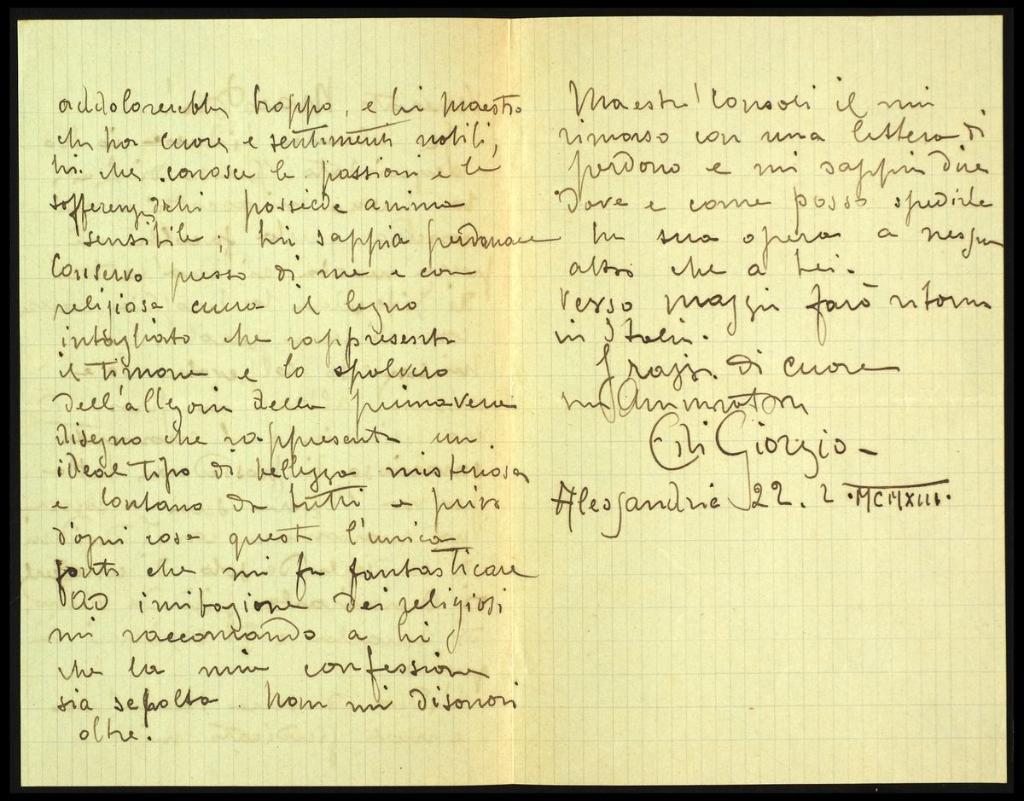 addolorerebbe troppo, e lui maestro
che ha cuore e sentimenti nobili,
lui che conosce le passioni e le
sofferenze, possiede anima
sensibile; lui sappia perdonare
Conservo presso di me e con
religiosa cura il legno
intagliato che rappresenta
il timone e lo spolvero
dell'allegoria della primavera
disegno che rappresenta un
ideal tipo di bellezza misteriosa
e lontano da tutti e privo
d'ogni cosa questa l'unica
fonte che mi fa fantasticare
Ad imitazione dei religiosi
mi raccomando a lei
che la mia confessione
sia sepolta. Non mi disonori
oltre.
Maestro! Consoli il mio
rimorso con una lettera di
perdono e mi sappia dire
Dove e come posso spedirle
la sua opera a nessun
altro che a Lei.
Verso maggio farò ritorno
in Italia.
Grazie di cuore
suo Ammiratore
Giorgio
Alessandria 22. 2 .MCMXIII.